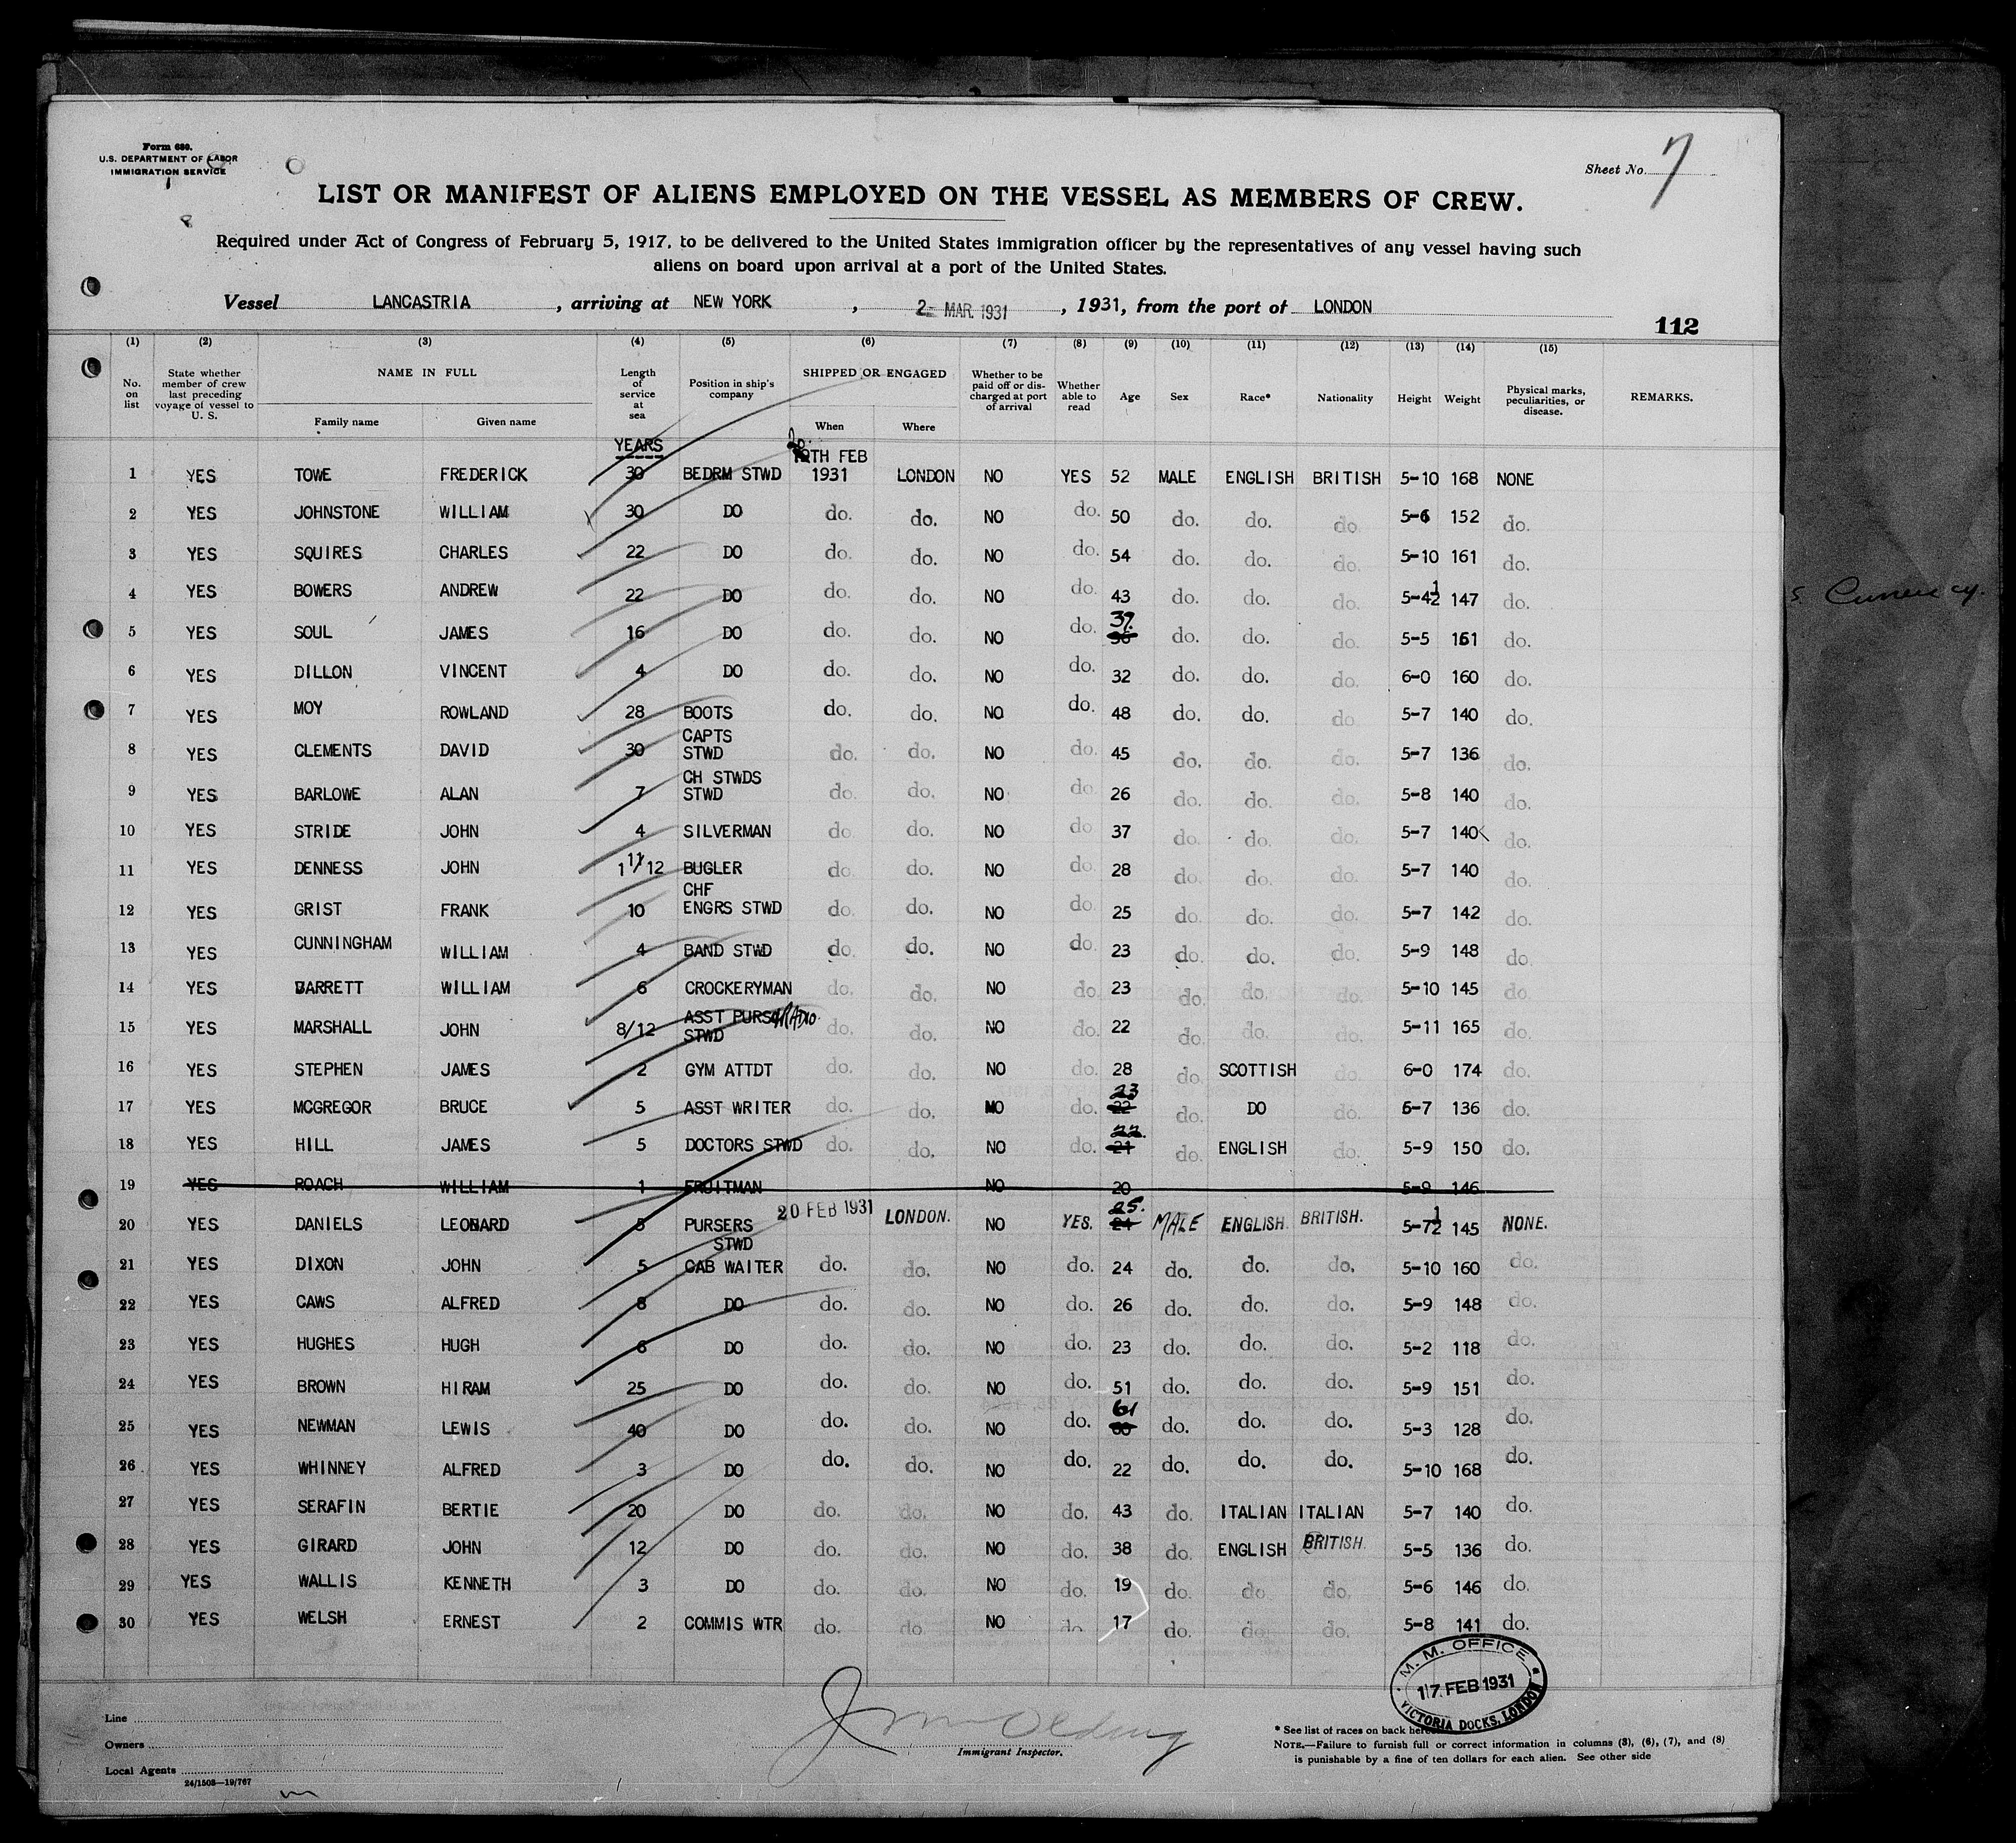 Form 680.
U.S. DEPARTMENT OF LABOR
IMMIGRATION SERVICE
Sheet No. 7
LIST OR MANIFEST OF ALIENS EMPLOYED ON THE VESSEL AS MEMBERS OF CREW.
Required under Act of Congress of February 5, 1917, to be delivered to the United States immigration officer by the representatives of any vessel having such
aliens on board upon arrival at a port of the United States.
Vessel LANCASTRIA, arriving at NEW YORK, 2- MAR. 1931, 1931, from the port of LONDON
112
(1) (2) (3) (4) (5) (6) (7) (8) (9) (10) (11) (12) (13) (14) (15)
No. on list State whether member of crew last preceding voyage of vessel to U. S. NAME IN FULL Family name Given name Length of service at sea Position in ship's company SHIPPED OR ENGAGED When Where Whether to be paid off or discharged at port of arrival Whether able to read Age Sex Race* Nationality Height Weight Physical marks, peculiarities, or disease. REMARKS.
YEARS
1 YES TOWE FREDERICK 30 BEDRM STWD 20 TH FEB 1931 LONDON NO YES 52 MALE ENGLISH BRITISH 5-10 168 NONE
2 YES JOHNSTONE WILLIAM 30 DO do. do. NO do. 50 do. do. do. 5-6 152 do.
3 YES SQUIRES CHARLES 22 DO do. do. NO do. 54 do. do. do. 5-10 161 do.
4 YES BOWERS ANDREW 22 DO do. do. NO do. 43 do. do. do. 5-4½ 147 do.
5 YES SOUL JAMES 16 DO do. do. NO do. 37. do. do. do. 5-5 161 do.
6 YES DILLON VINCENT 4 DO do. do. NO do. 32 do. do. do. 6-0 160 do.
7 YES MOY ROWLAND 28 BOOTS do. do. NO do. 48 do. do. do. 5-7 140 do.
8 YES CLEMENTS DAVID 30 CAPTS STWD do. do. NO do. 45 do. do. do. 5-7 136 do.
9 YES BARLOWE ALAN 7 CH STWDS STWD do. do. NO do 26 do. do. do. 5-8 140 do.
10 YES STRIDE JOHN 4 SILVERMAN do. do. NO do 37 do. do. do. 5-7 140 do.
11 YES DENNESS JOHN 1 11/12 BUGLER do. do. NO do. 28 do. do. do. 5-7 140 do.
12 YES GRIST FRANK 10 CHF ENGRS STWD do. do. NO do. 25 do. do. do. 5-7 142 do.
13 YES CUNNINGHAM WILLIAM 4 BAND STWD do. do. NO do. 23 do. do. do. 5-9 148 do.
14 YES BARRETT WILLIAM 6 CROCKERYMAN do. do. NO do. 23 do. do. do. 5-10 145 do.
15 YES MARSHALL JOHN 8/12 ASST PURS RADIO STWD do. do. NO do. 22 do. do. do. 5-11 165 do.
16 YES STEPHEN JAMES 2 GYM ATTDT do. do. NO do. 28 do. SCOTTISH do. 6-0 174 do.
17 YES MCGREGOR BRUCE 5 ASST WRITER do. do. NO do. 23 22 do. DO do. 5-7 136 do.
18 YES HILL JAMES 5 DOCTORS STWD do. do. NO do. 22. 21 do. ENGLISH do. 5-9 150 do.
19 YES ROACH WILLIAM 1 FRUITMAN NO 20 5-9 146
20 YES DANIELS LEONARD 5 PURSERS STWD 20 FEB 1931 LONDON. NO YES. 25. 24 MALE ENGLISH. BRITISH. 5-7½ 145 NONE.
21 YES DIXON JOHN 5 CAB WAITER do. do. NO do. 24 do. do. do. 5-10 160 do.
22 YES CAWS ALFRED 8 DO do. do. NO do. 26 do. do. do. 5-9 148 do.
23 YES HUGHES HUGH 6 DO do. do. NO do. 23 do. do. do. 5-2 118 do.
24 YES BROWN HIRAM 25 DO do. do. NO do. 51 do. do. do. 5-9 151 do.
25 YES NEWMAN LEWIS 40 DO do. do. NO do. 61 60 do. do. do. 5-3 128 do.
26 YES WHINNEY ALFRED 3 DO do. do. NO do. 22 do. do. do. 5-10 168 do.
27 YES SERAFIN BERTIE 20 DO do. do. NO do. 43 do. ITALIAN ITALIAN 5-7 140 do.
28 YES GIRARD JOHN 12 DO do. do. NO do. 38 do. ENGLISH BRITISH. 5-5 136 do.
29 YES WALLIS KENNETH 3 DO do. do. NO do. 19 do. do do. 5-6 146 do.
30 YES WELSH ERNEST 2 COMMIS WTR do. do. NO do. 17 do. do. do. 5-8 141 do.
M. M. OFFICE
17 FEB 1931
VICTORIA DOCKS, LONDON
Line
Owners
Local Agents
24/1505—19/767
Immigrant Inspector.
* See list of races on back
NOTE.—Failure to furnish full or correct information in columns (3), (6), (7), and (8)
is punishable by a fine of ten dollars for each alien. See other side
Currency.